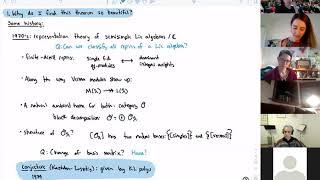 1. Why do I find this theorem so beautiful?
Some history:
1970's: representation theory of semisimple Lie algebras / ℂ
Q: Can we classify all repns of a Lie algebra?
• Finite-dim'l repns: simple f.d. 𝔤-modules ↔ dominant integral weights
• Along the way Verma modules show up:
M(λ) → L(λ)
• A natural ambient home for both: category O
block decomposition
• structure of has two natural bases: {[simples]} and {[Vermas]}
Q: Change of basis matrix? Hmm!
Conjecture (Kazhdan-Lusztig): given by KL polys
1979